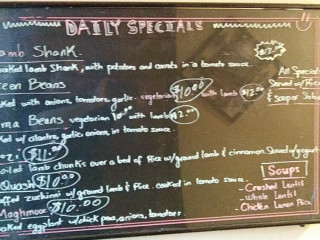 DAILY SPECIALS
amb Shank.
oaked lamb Shank, with potatos and carrots in a tomato sauce.
All Specials
een Beans
Served w/Rice
oked with onions, tomatoes, garlic. vegetarian $10.00 with lamb $12.00
& soup or Salad
ma Beans vegetarian 10.00 with lamb $12.00
ked w/ cilantro, garlic onions, in tomato sauce.
$11.00
oiled lamb chunks over a bed of Rice w/ground lamb & cinnamon. Served w/yogurt
Squash $10.00
Soups
uffed zucchini w/ground lamb & Rice. cooked in tomato sauce.
- Crushed Lentil
- Whole Lentil
Maghmoor $10.00
- Chicken Lemon Rice
ooked eggplant w/chick peas, onions, tomatoes